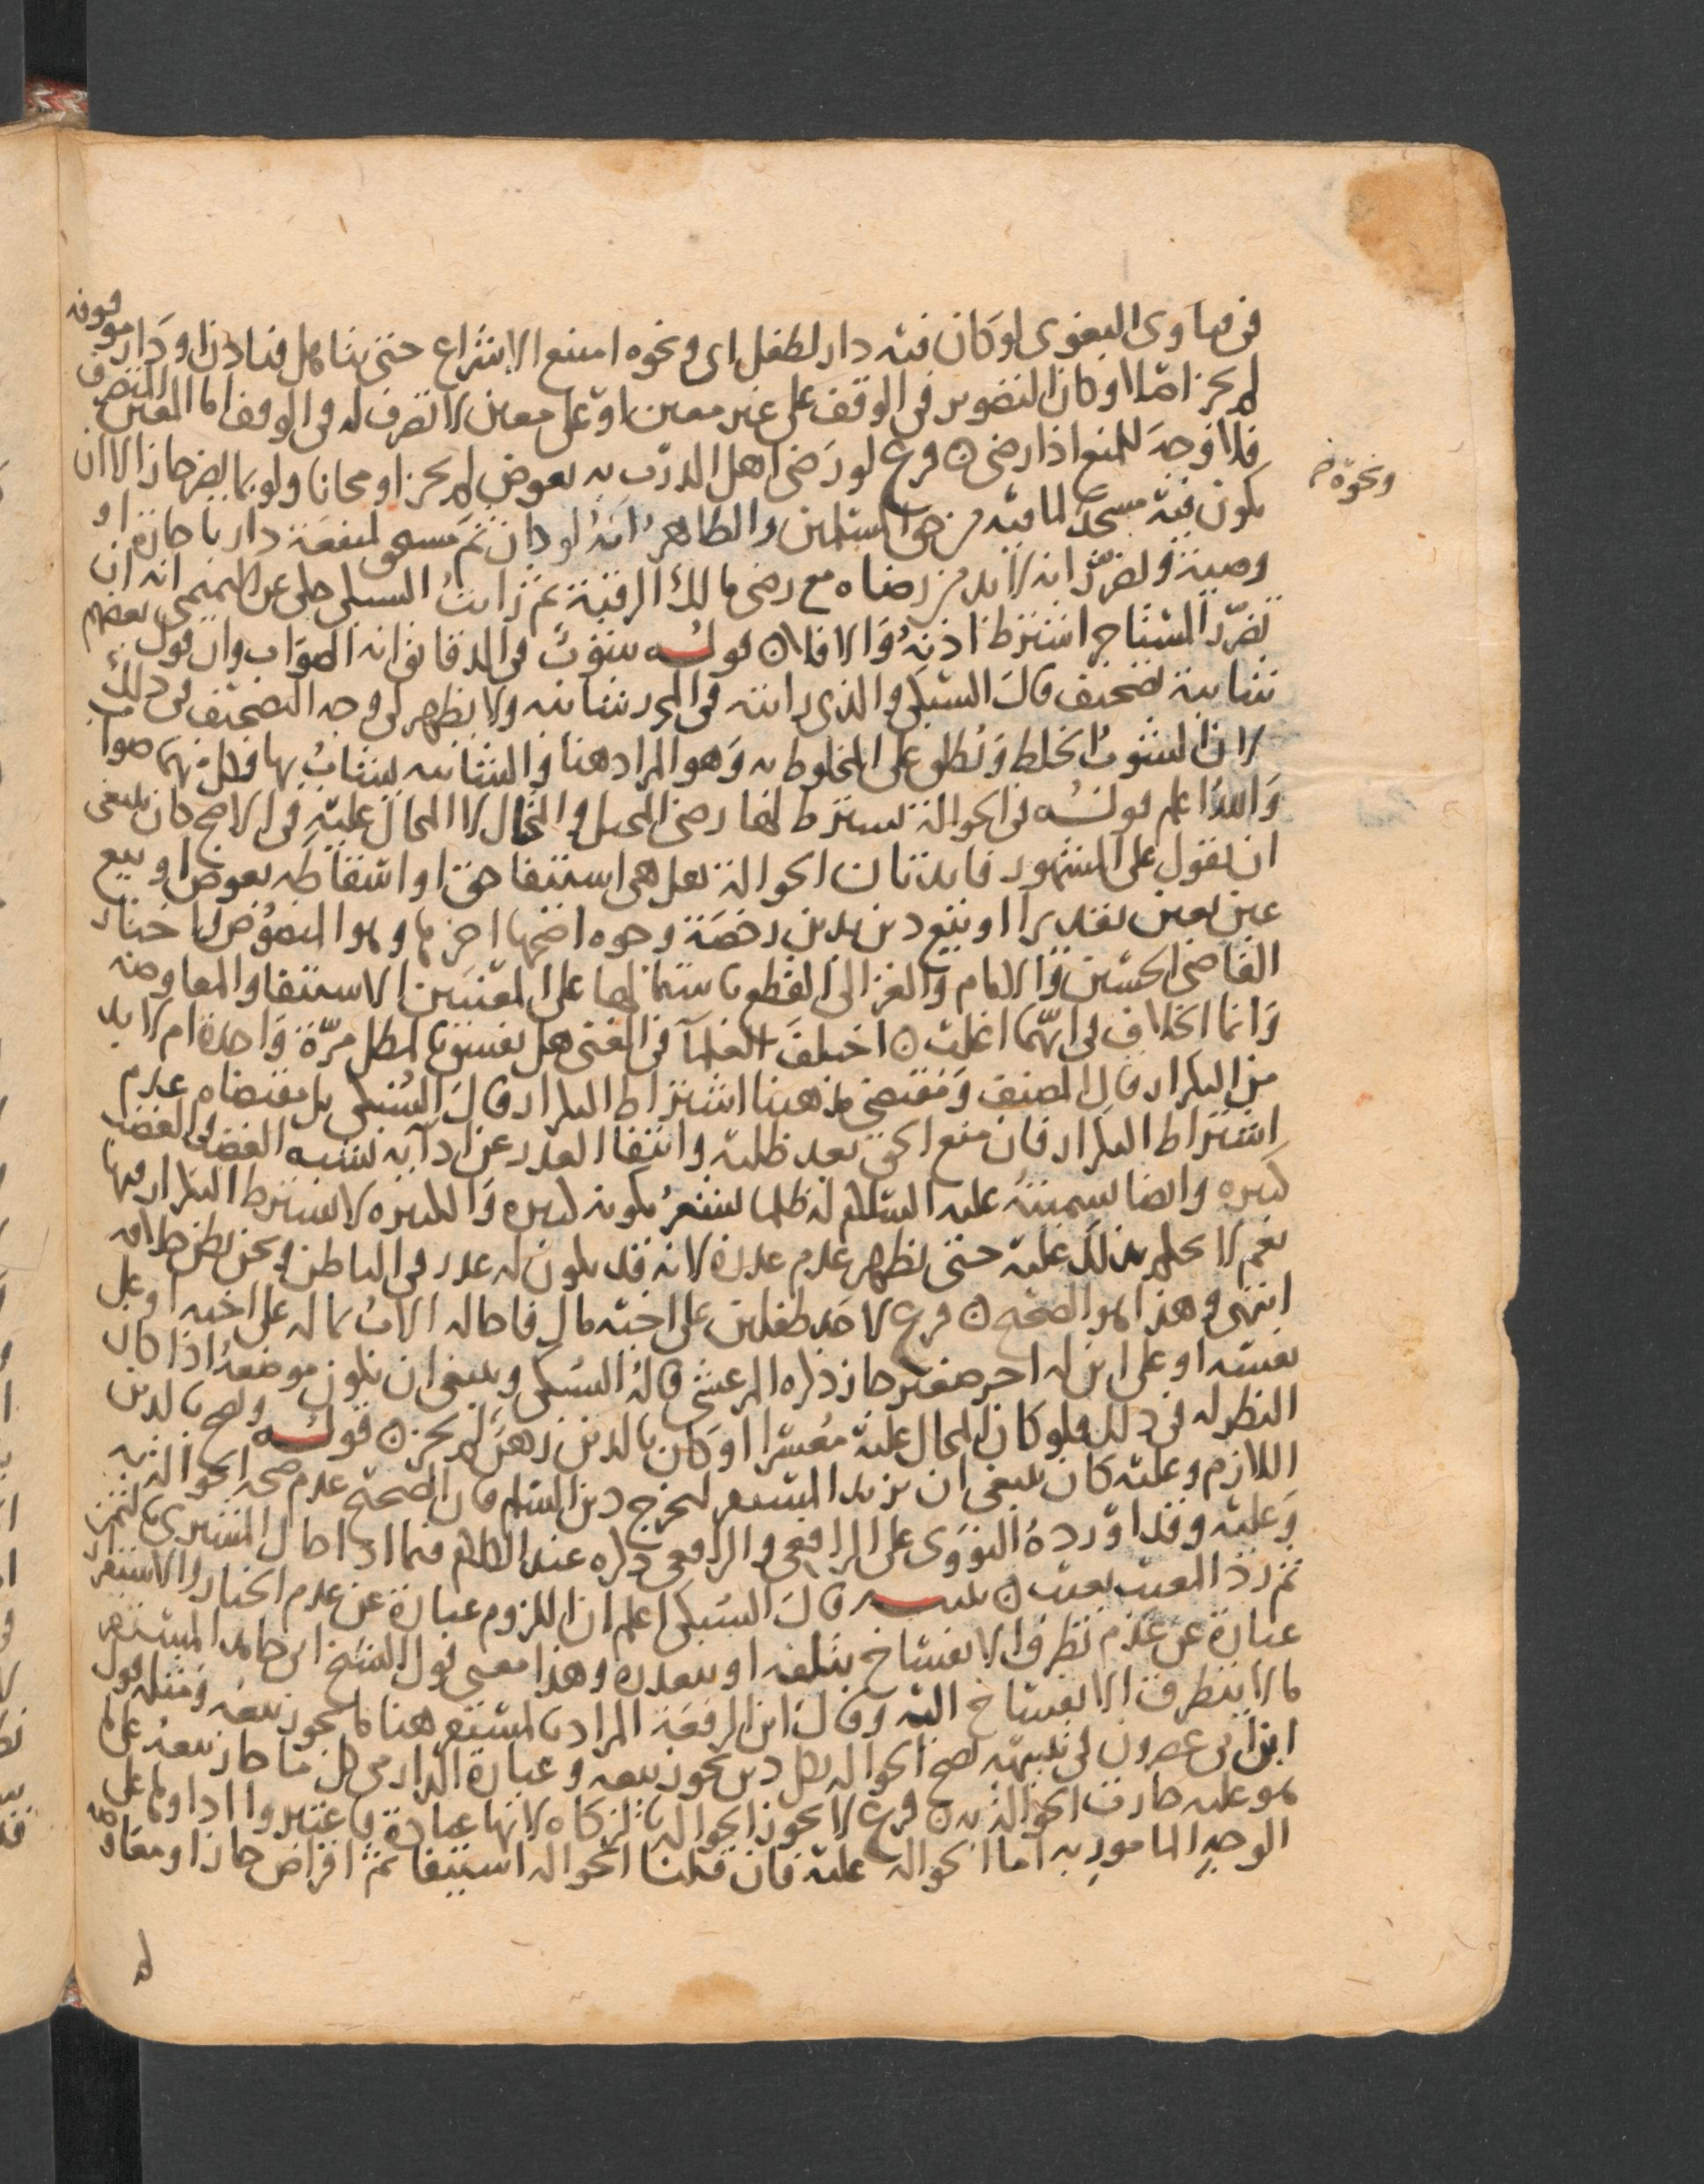 في فتاوى البغوي لو كان فيه دار لطفل اى ونحوه امتنع الاشراع حتى يتاهل فياذن او دار موقوفه
لم يجز اصلا وكان التصوير في الوقف على غير معين او على معين لا تصرف له في الوقف اما المعين المتصرف
فلا وجه للمنع اذا رضى ٥ فرع لو رضى اهل الدرب به بعوض لم يجز او مجانا ولو بما يضر جاز الا ان
يكون فيه مسجد لما فيه من حق المسلمين والظاهر انه لو كان ثم مستحق لمنفعة دار باجارة او
وصية وتضرر انه لا بد من رضاه مع رضى مالك الرقبة ثم رايت السبكي حكى عن انه ان
تضرر المستاجر اشترط اذنه والا فلا ٥ قوله بشوب في الدقائق انه الصواب وان قول بعضهم
شائبة تصحيف قال السبكي والذي رايته في المحرر شائبه ولا يظهر لي وجه التصحيف في ذلك
لان الشوب الخلط ويطلق على المخلوط به وهو المراد هنا والشائبه يشاب بها فكل منهما صواب
والله اعلم قوله في الحوالة يشترط لها رضى المحيل والمحتال لا المحال عليه في الاصح كان ينبغي
ان يقول على المشهور فائدتان الحوالة هل هي استيفا حق او اسقاطه بعوض او بيع
عين بعين تقديرا او بيع دين بدين رخصة وجوه اصحها اخرها وهو المنصوص واختار
القاضي الحسين والامام والغزالي القطع باشتمالها على المعنيين الاستيفا والمعاوضه
وانما الخلاف في ايهما اغلب ٥ اختلف العلماء في الغنى هل يفسق بالمطل مرة واحدة ام لا بد
من التكرار قال المصنف ومقتضى مذهبنا اشتراط التكرار قال السبكي بل مقتضاه عدم
اشتراط التكرار فان منع الحق بعد طلبه وانتفا العذر عن ادائه يشبه الغصب والغصب
كبيره وايضا تسميته عليه السلام له ظلما يشعر بكونه كبيره والكبيره لا يشترط التكرار فيها
نعم لا يحكم بذلك عليه حتى يظهر عدم عذره لانه قد يكون له عذر في الباطن ونحن نظن خلافه
انتهى وهذا هو الصحيح ٥ فرع لاحد طفلين على اخيه مال فاحاله الاب بماله على اخيه او على
نفسه او على ابن له اخر صغير جاز ذكره المرعشي قال السبكي وينبغي ان يكون موضعه اذا كان
النظر له في ذلك فلو كان المحال عليه معسرا او كان بالدين رهن لم يجز ٥ قوله وتصح بالدين
اللازم وعليه كان ينبغي ان يزيد المستقر ليخرج دين السلم فان الصحيح عدم صحه الحوالة به
وعليه وقد اورده النووي على الرافعي والرافعي ذكره عند الكلام فيما اذا احال المشتري بالثمن
ثم رد المبيع بعيب ٥ تنبيه قال السبكي اعلم ان اللزوم عبارة عن عدم الخيار والاستقرار
عبارة عن عدم تطرق الانفساخ بتلفه او تعذره وهذا معنى قول الشيخ ابي حامد المستقر
ما لا يتطرق الانفساخ اليه وقال ابن الرفعة المراد بالمستقر هنا ما يجوز بيعه ومثله قول
ابن ابي عصرون في تنبيهه تصح الحواله بكل دين يجوز بيعه وعبارة الدارمي كل ما جاز بيعه على ما
هو عليه جازت الحواله به ٥ فرع لا يجوز الحواله بالزكاه لانها عبادة فاعتبر اداولها على
الوجه المامور به اما الحواله عليه فان قلنا الحواله استيفا ثم اقراض جاز او معاوضه
ونحوه
لم